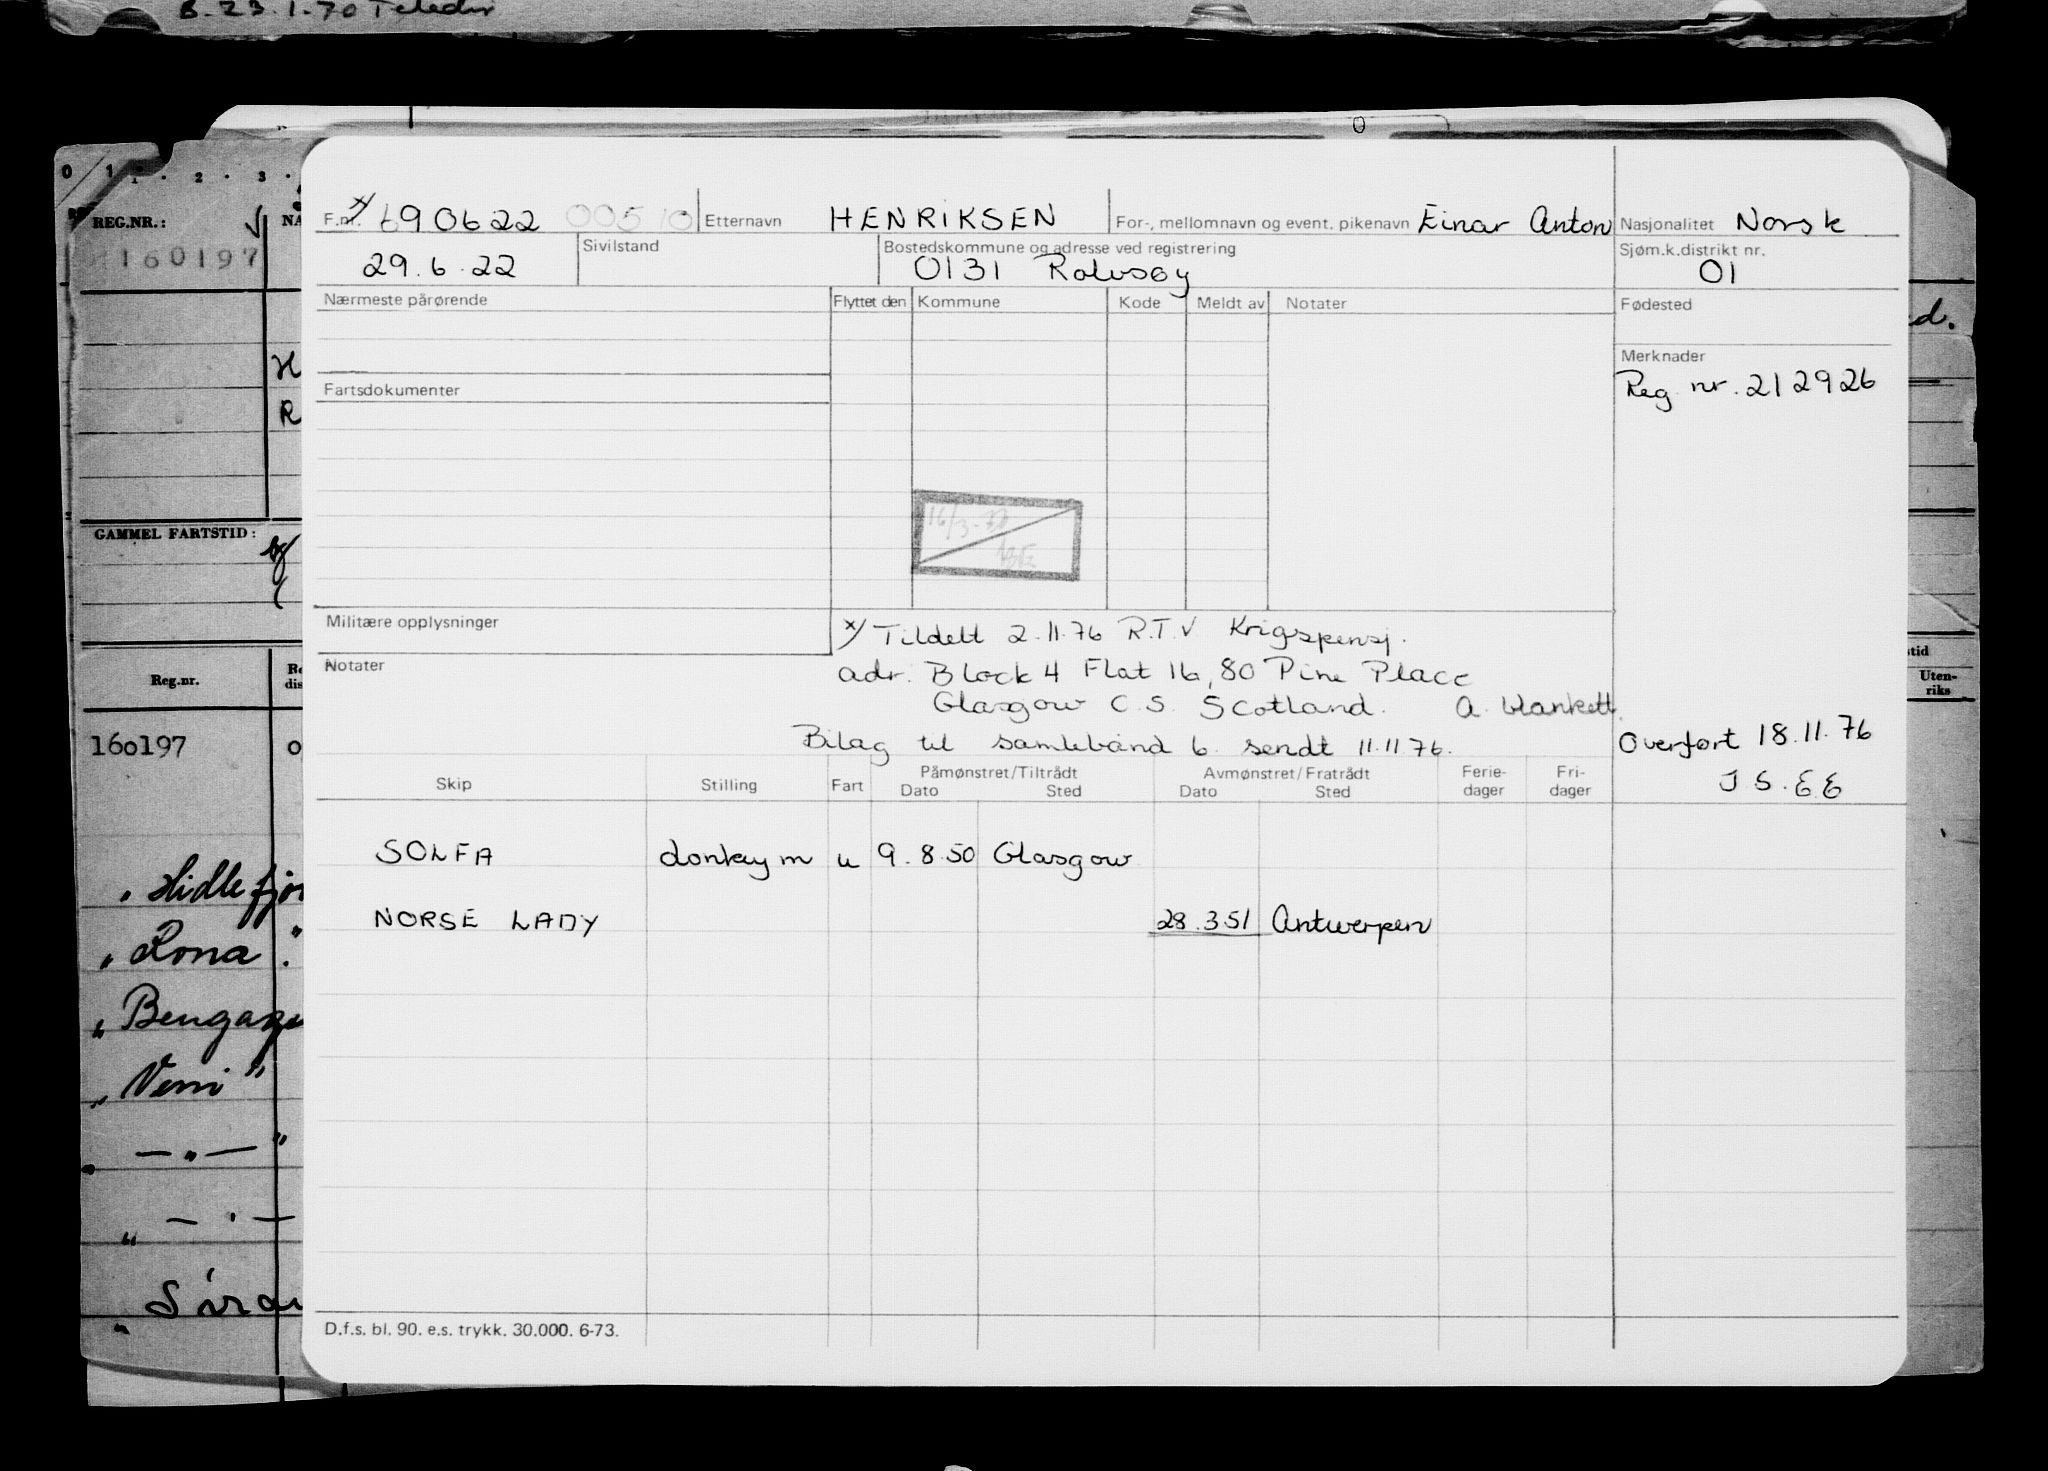 B. 23.1.70 Teledir
0 1 . 2 . 3 .
REG.NR.: NA
160197
H
R
GAMMEL FARTSTID:
Reg.nr.
160197 o
" Hidlefjor
" Rona "
" Bengazi
" Veni "
" — " — "
" — " —
F.nr. x/ 690622 00510 Etternavn HENRIKSEN For-, mellomnavn og event. pikenavn Einar Anton Nasjonalitet Norsk
29.6.22 Sivilstand Bostedskommune og adresse ved registrering 0131 Rolvsøy Sjøm.k.distrikt nr. 01
Nærmeste pårørende Flyttet den Kommune Kode Meldt av Notater Fødested
Merknader
Reg nr. 212926
Fartsdokumenter
16/3-
Militære opplysninger x/ Tildelt 2.11.76 R.T.V Krigspensj.
Notater adr. Block 4 Flat 16, 80 Pine Place
Glasgow C.S. Scotland. A. blankett.
Bilag til samlebånd 6. sendt 11.11.76. Overført 18.11.76
J S. EE
Skip Stilling Fart Påmønstret/Tiltrådt Dato Sted Avmønstret/Fratrådt Dato Sted Ferie-dager Fri-dager
SOLFA donkeym u 9.8.50 Glasgow
NORSE LADY 28.3.51 Antwerpen
D.f.s. bl. 90. e.s. trykk. 30.000. 6-73.
d.
tid
Uten-
riks